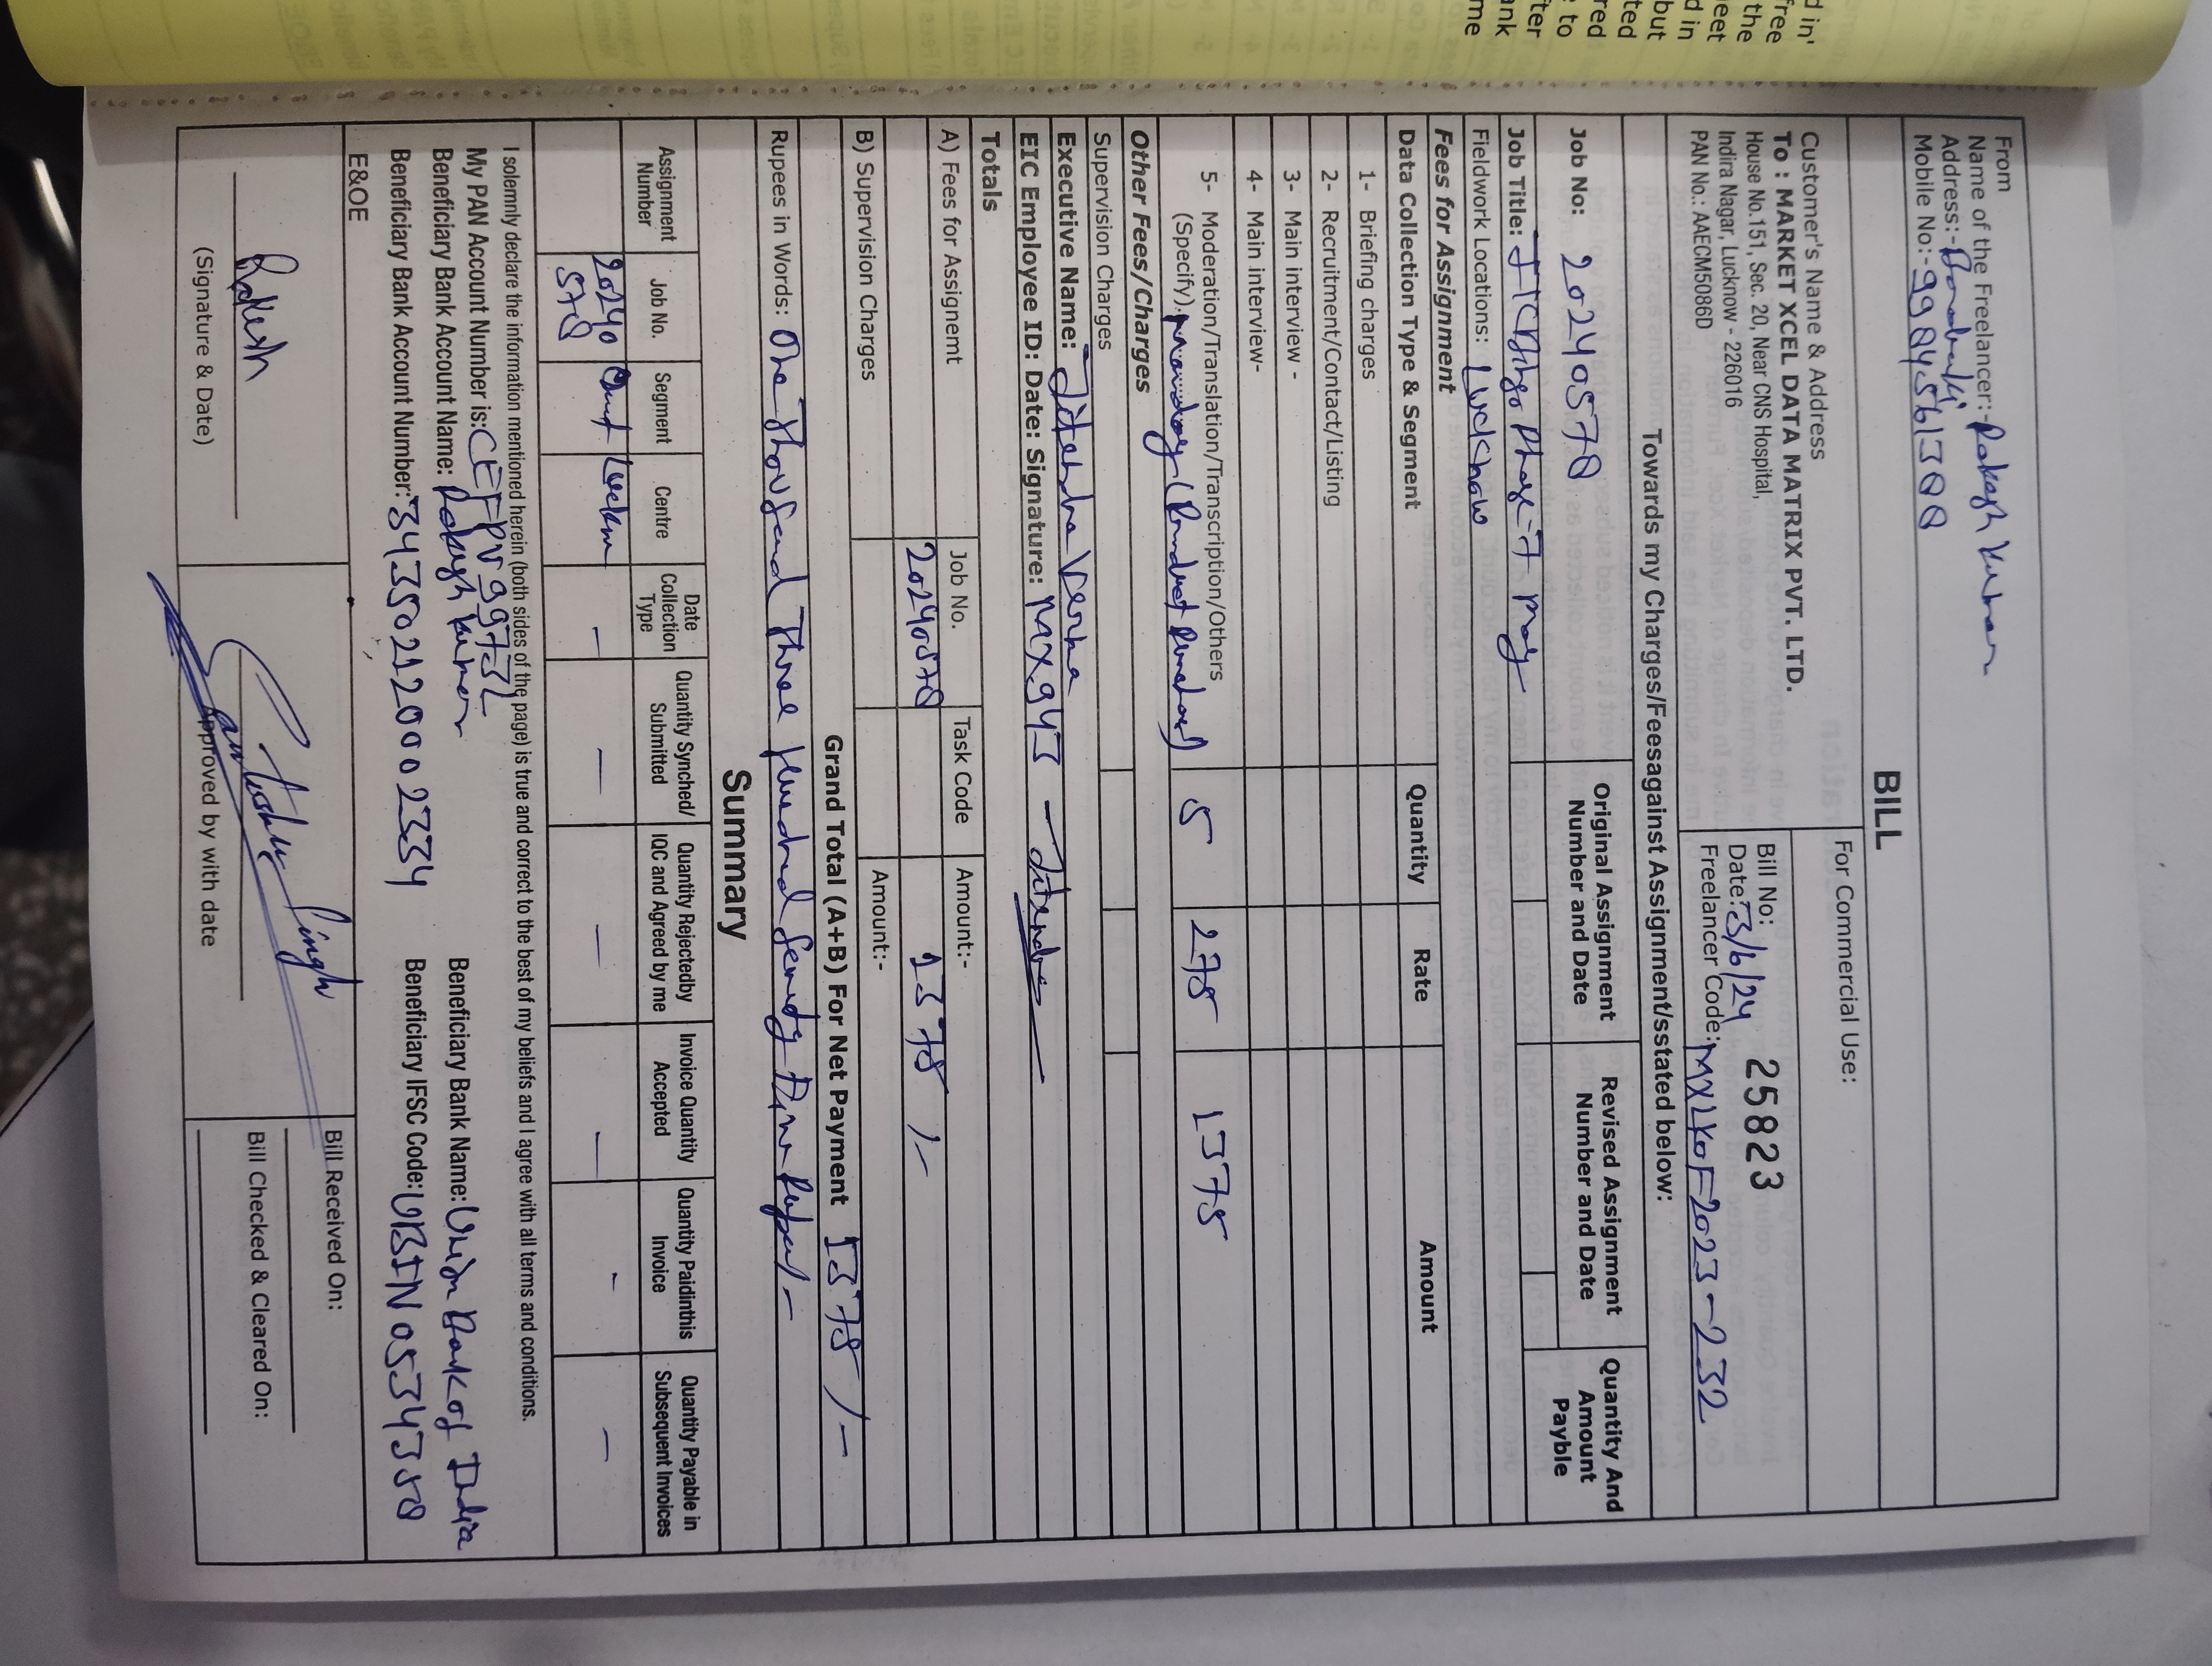 d in'
free
the
eet
d in
but
ted
red
to
fter
ank
me
From
Name of the Freelancer:-Rakesh Kumar
Address:-
Mobile No:-9984561388
BILL
Customer's Name & Address
To : MARKET XCEL DATA MATRIX PVT. LTD.
House No.151, Sec. 20, Near CNS Hospital,
Indira Nagar, Lucknow - 226016
PAN No.: AAECM5086D
For Commercial Use:
Bill No: 25823
Date:3/6/24
Freelancer Code:MXLKOF2023-232
Towards my Charges/Feesagainst Assignment/sstated below:
Job No: 20240578
Original Assignment Number and Date
Revised Assignment Number and Date
Quantity And Amount Payble
Job Title: Phase-7 May
Fieldwork Locations: Lucknow
Fees for Assignment
Data Collection Type & Segment Quantity Rate Amount
1- Briefing charges
2- Recruitment/Contact/Listing
3- Main interview -
4- Main interview-
5- Moderation/Translation/Transcription/Others 5 275 1375
(Specify)
Other Fees/Charges
Supervision Charges
Executive Name: Jitendra Verma
EIC Employee ID: Date: Signature: MX943 - Jitendra
Totals
A) Fees for Assignemt Job No. Task Code Amount:-
20240578 1375 /-
B) Supervision Charges Amount:-
Grand Total (A+B) For Net Payment 1375 /-
Rupees in Words: One Thousand Three Hundred Seventy Five Rupees/-
Summary
Assignment Number
Job No.
Segment
Centre
Date Collection Type
Quantity Synched/ Submitted
Quantity Rejectedby IQC and Agreed by me
Invoice Quantity Accepted
Quantity Paidinthis Invoice
Quantity Payable in Subsequent Invoices
20240 - - - - - -
578
I solemnly declare the information mentioned herein (both sides of the page) is true and correct to the best of my beliefs and I agree with all terms and conditions.
My PAN Account Number is:
Beneficiary Bank Account Name: Rakesh Kumar Beneficiary Bank Name: Union Bank of India
Beneficiary Bank Account Number: 343502120002334 Beneficiary IFSC Code: UBIN0534358
E&OE
Rakesh
(Signature & Date)
Singh
Approved by with date
Bill Received On:
Bill Checked & Cleared On: